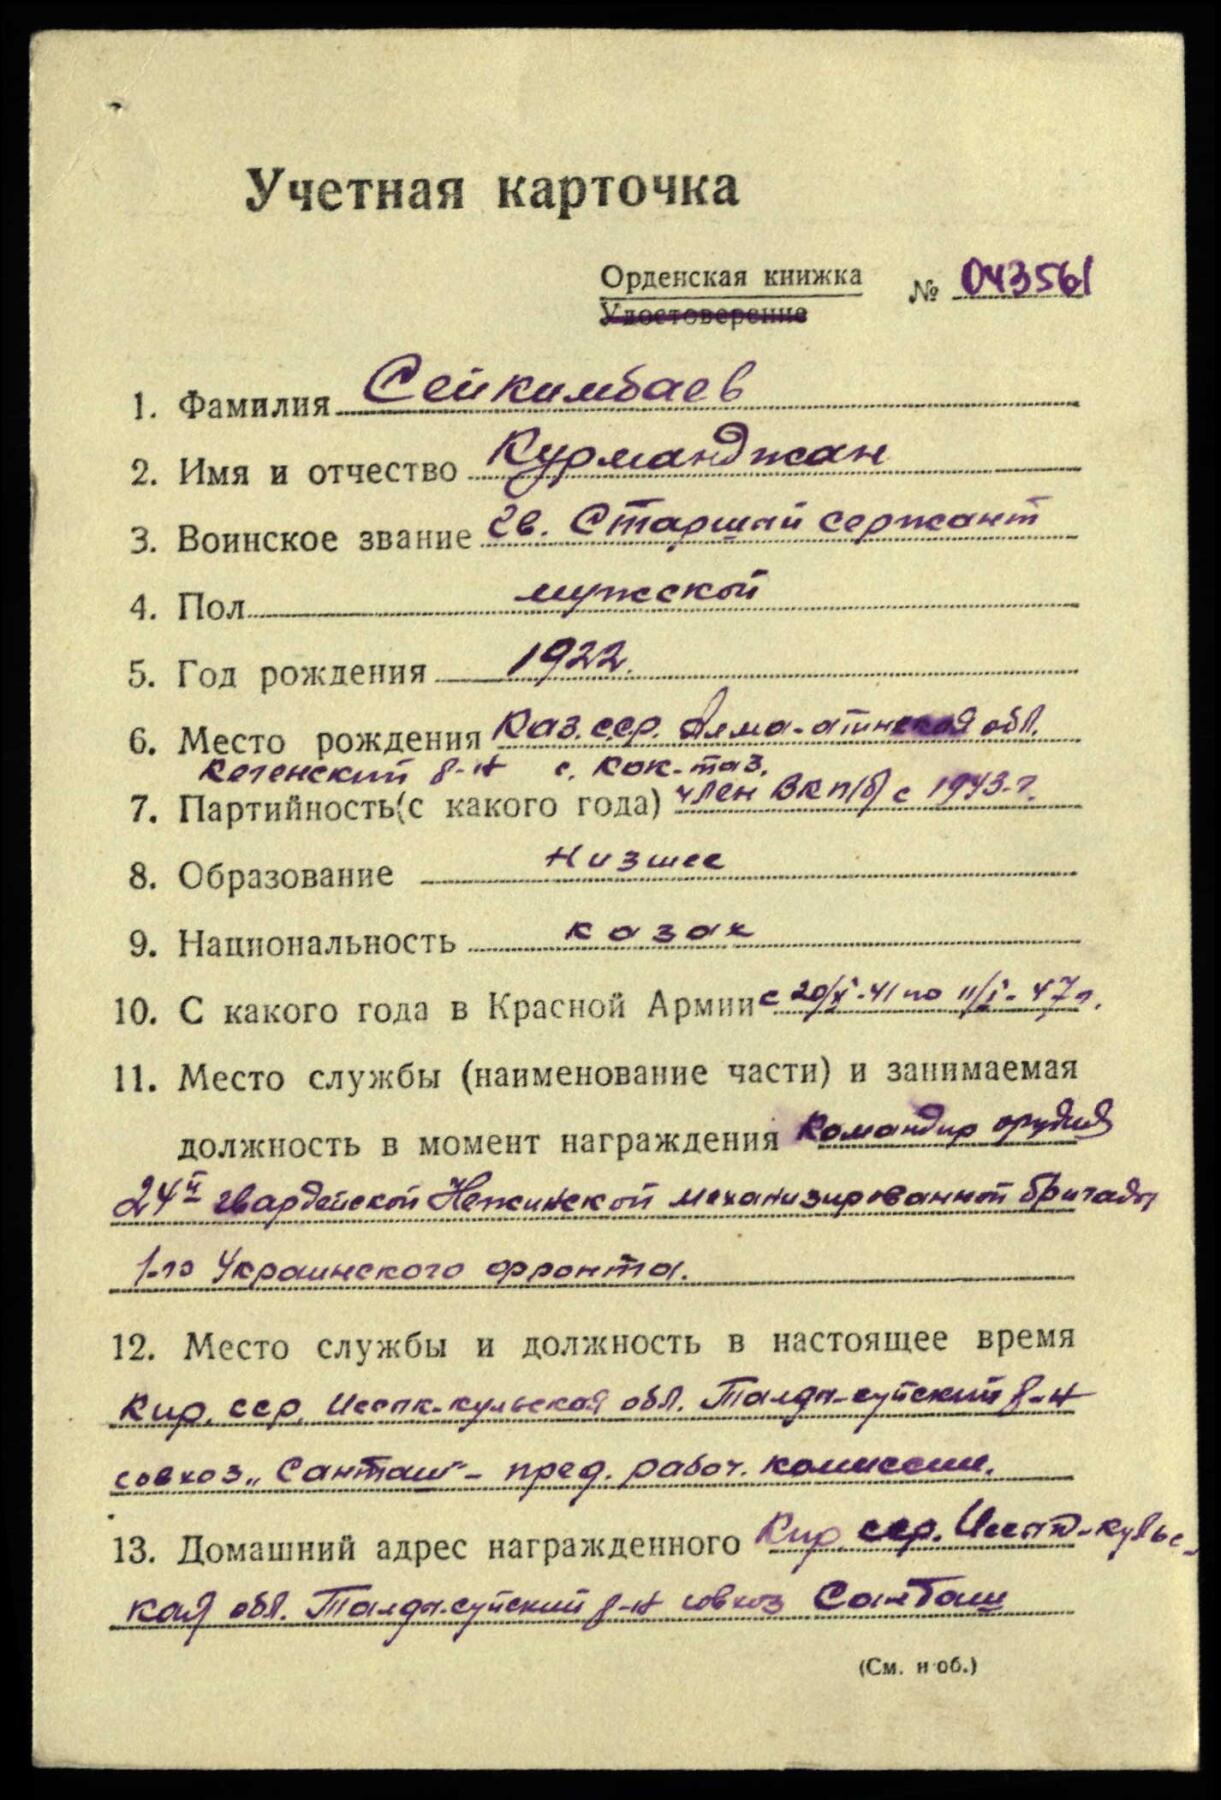 Учетная карточка
Орденская книжка № 043561
Удостоверение
1. Фамилия Сейкимбаев
2. Имя и отчество Курманджан
3. Воинское звание Гв. Старший сержант
4. Пол мужской
5. Год рождения 1922.
6. Место рождения Каз. сср. Алма-атинская обл.
Кегенский р-н с. Кок-таз.
7. Партийность (с какого года) член ВКП/б/ с 1943-г.
8. Образование низшее
9. Национальность казак
10. С какого года в Красной Армии с 20/XI-41 по 11/I-47 г.
11. Место службы (наименование части) и занимаемая
должность в момент награждения Командир орудия
24й гвардейской Нежинской механизированной бригады
1-го Украинского фронта.
12. Место службы и должность в настоящее время
Кир. сср. Иссык-кульская обл. Талды-суйский р-н
совхоз „Санташ" - пред. рабоч. комиссии.
13. Домашний адрес награжденного Кир. сср. Иссык-кульс-
кая обл. Талды-суйский р-н совхоз Санташ
(См. н об.)